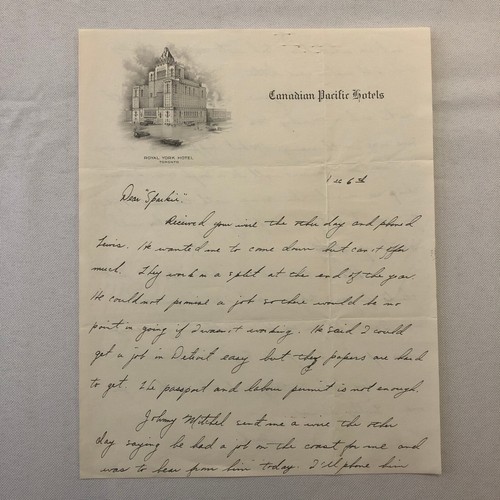 Canadian Pacific Hotels
ROYAL YORK HOTEL
TORONTO
Dec 6th
Dear "Sparkie",
Received your wire the other day and phoned
Lewis. He wanted me to come down but can't offer
much. They work on a split at the end of the year
He could not promise a job so there would be no
point in going if I wasn't working. He said I could
get a job in Detroit easy but the papers are hard
to get. The passport and labour permit is not enough.
Johnny Mitchel sent me a wire the other
day saying he had a job on the coast for me and
was to hear from him today. I'll phone him